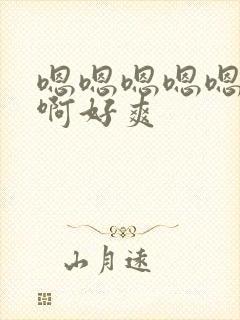 嗯嗯嗯嗯嗯
啊好爽
山月远